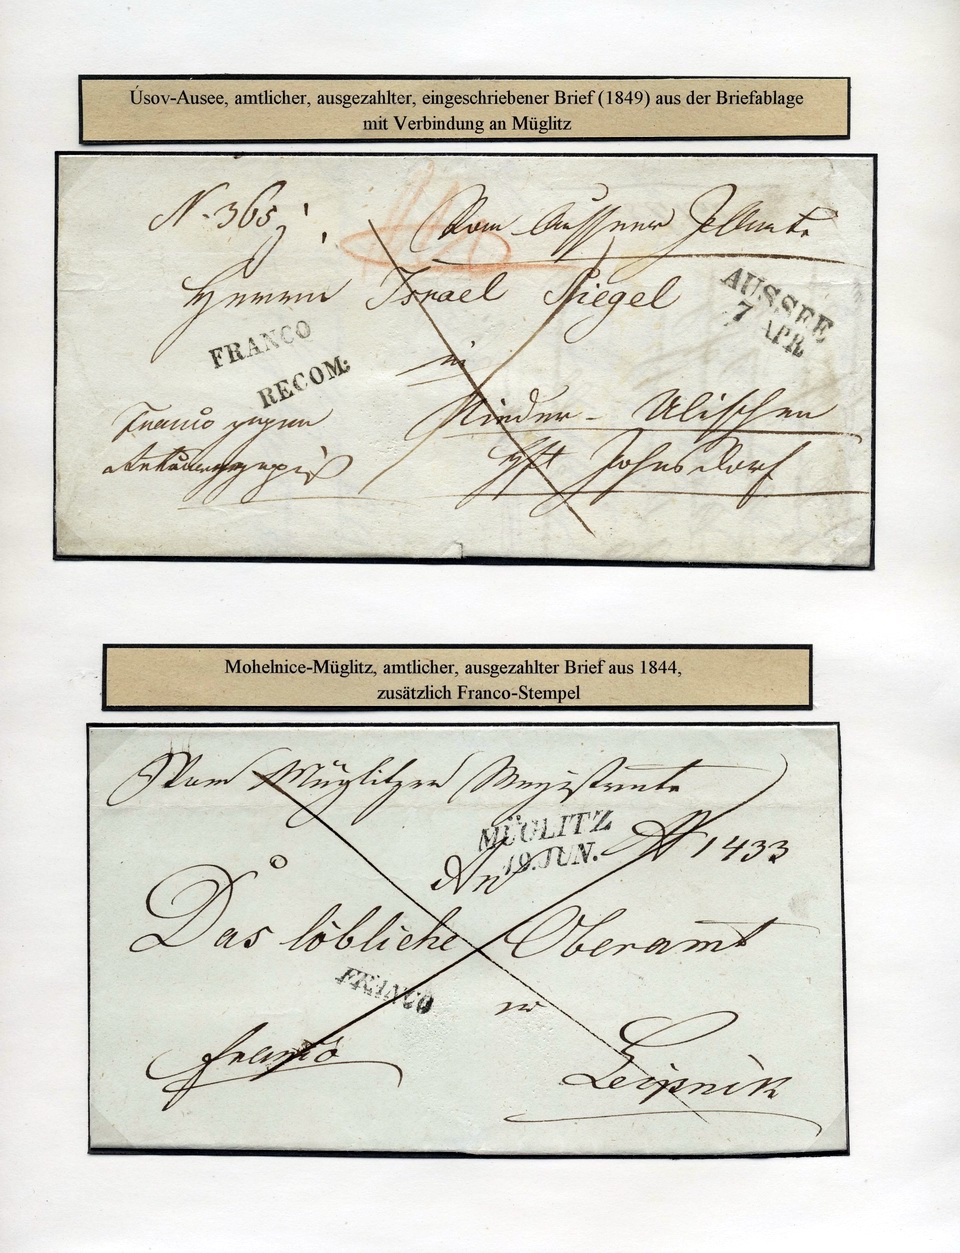 Úsov-Ausee, amtlicher, ausgezahlter, eingeschriebener Brief (1849) aus der Briefablage
mit Verbindung an Müglitz
N. 365
VomAusseer
Herrn Israel Spiegel
AUSSEE
7 APR.
FRANCO
RECOM:
in
Nieder - Ullischen
Hft Johnsdorf
Franco gegen
Mohelnice-Müglitz, amtlicher, ausgezahlter Brief aus 1844,
zusätzlich Franco-Stempel
Vom Müglitzer Magistrate
MÜGLITZ
19. JUN.
1433
An
Das löbliche Oberamt
FRANCO
zu
franco
Leipnik